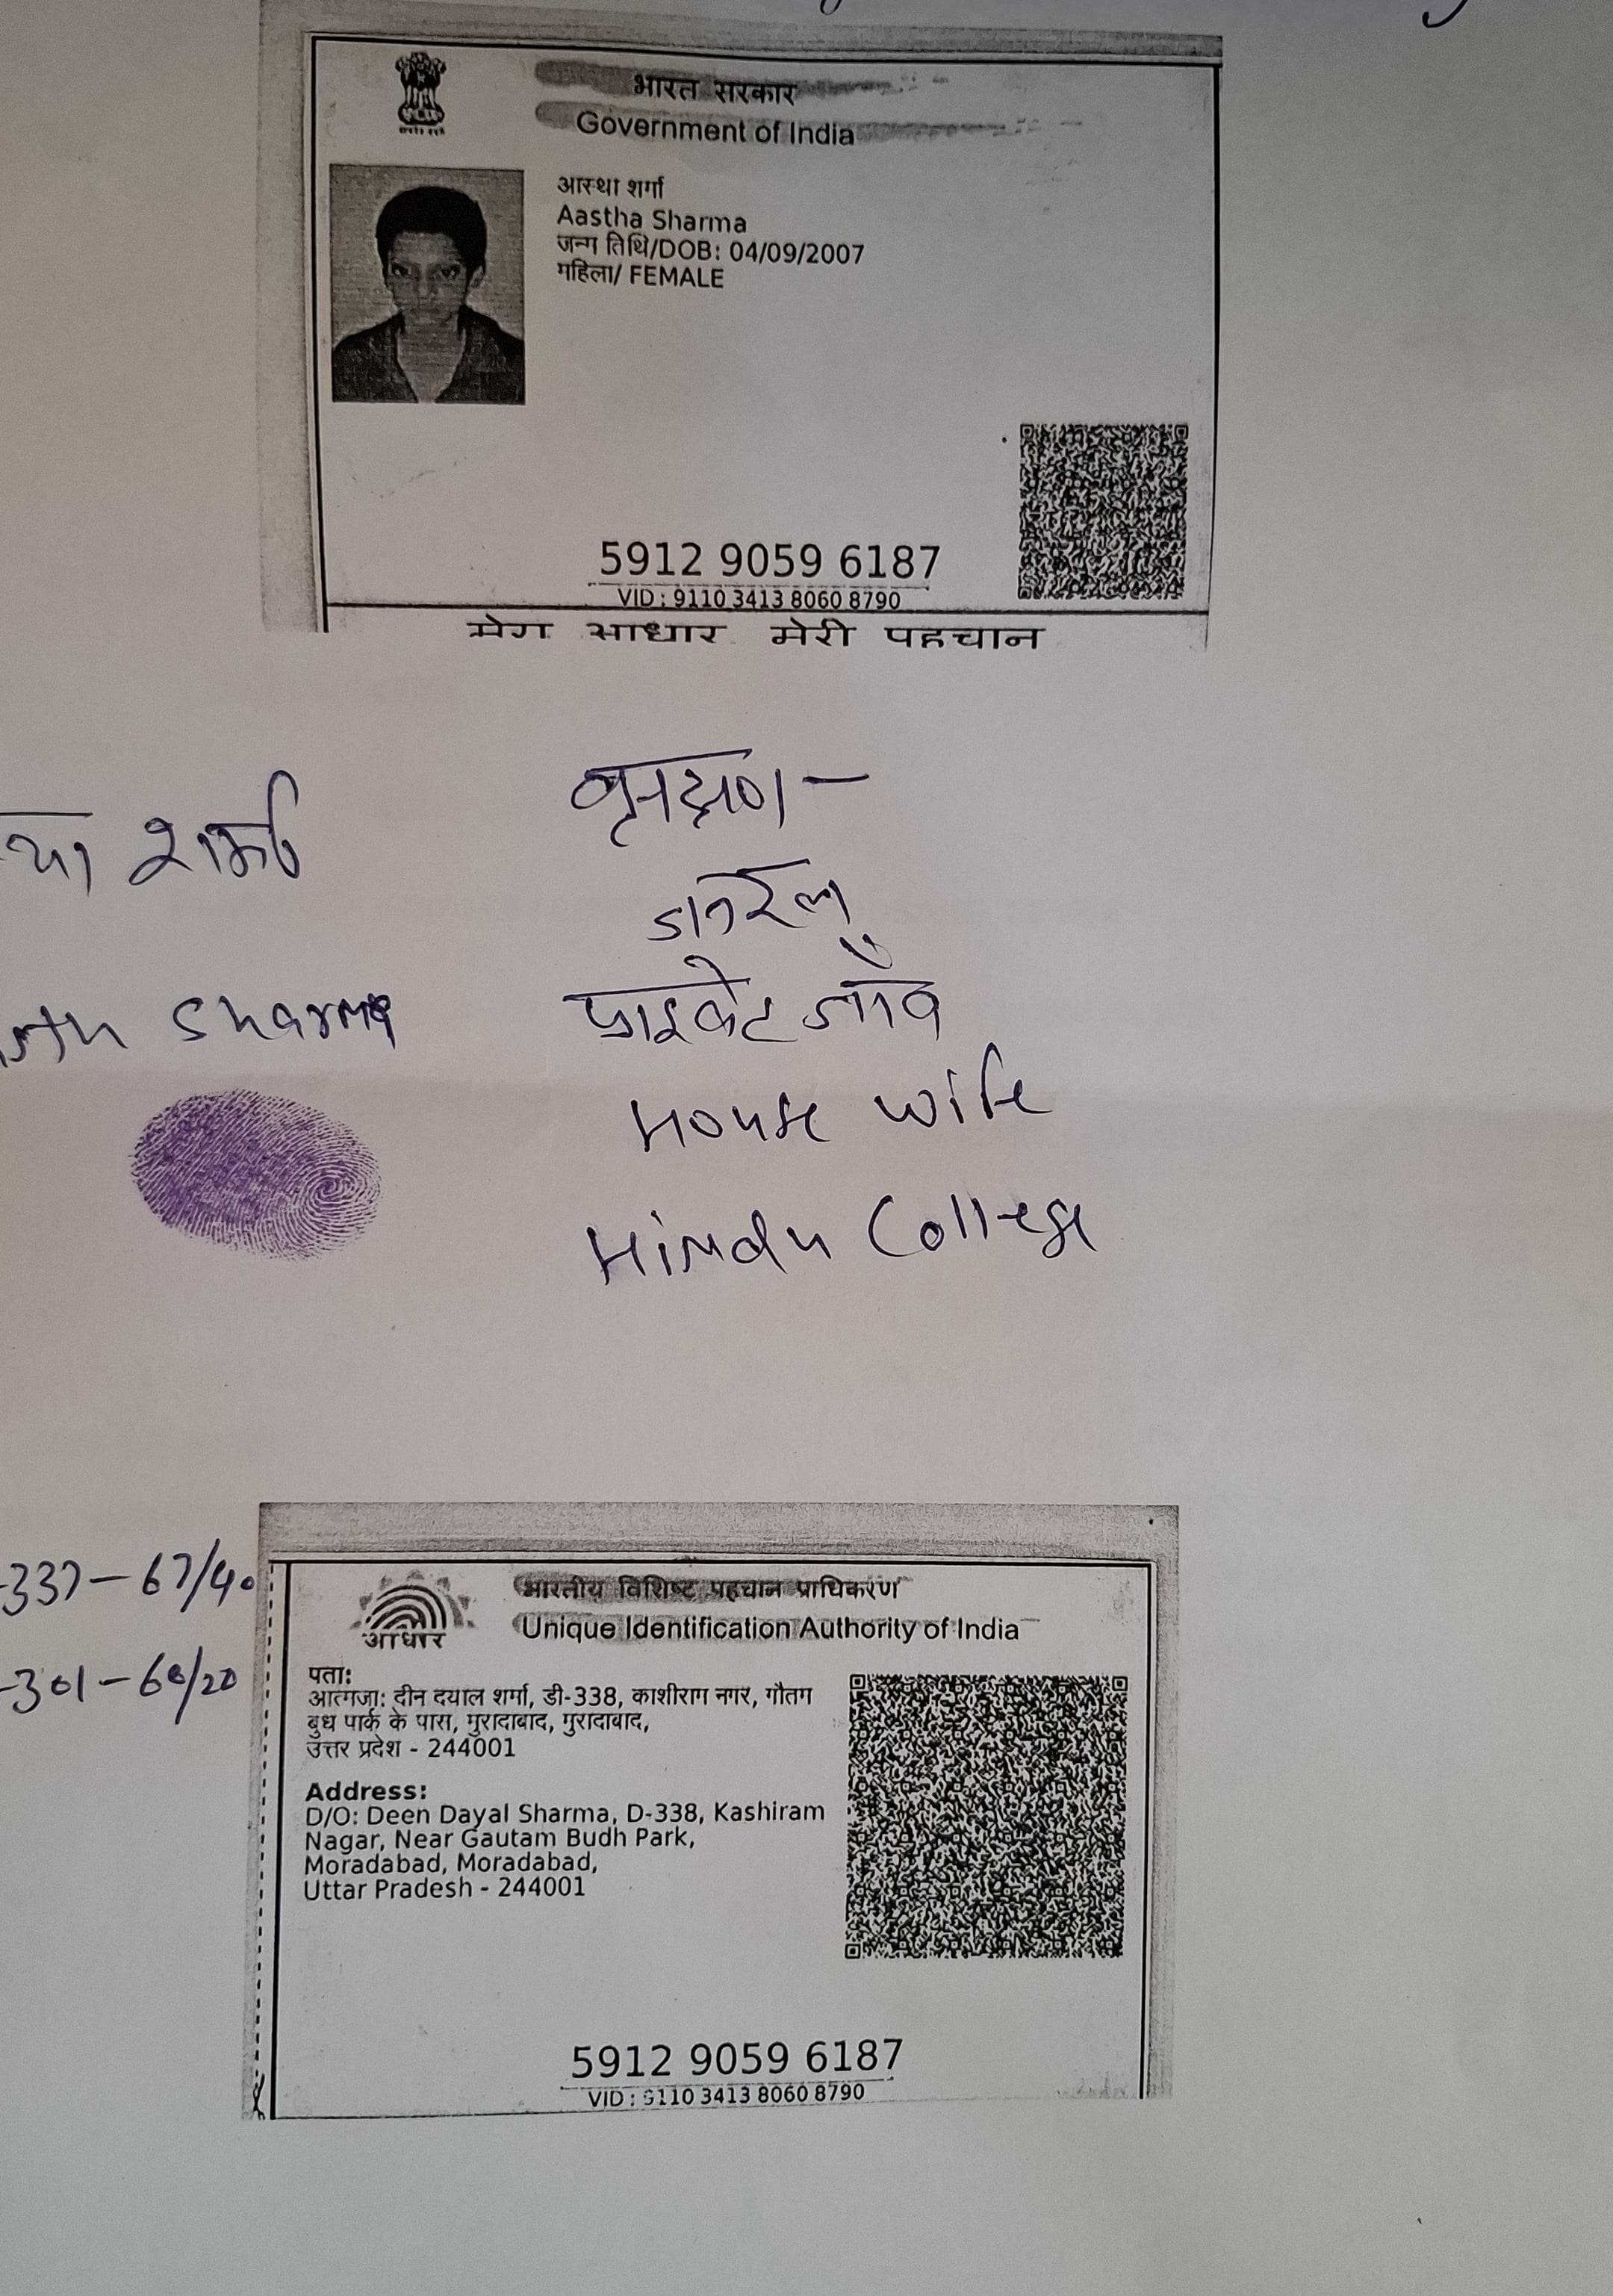 भारत सरकार
Government of India
आस्था शर्मा
Aastha Sharma
जन्म तिथि/DOB: 04/09/2007
महिला/ FEMALE
5912 9059 6187
VID : 9110 3413 8060 8790
मेरा आधार मेरी पहचान
शर्मा
Sharma
प्राइवेट जॉब
House wife
Hindu College
337-67/40
301-60/20
आधार
भारतीय विशिष्ट पहचान प्राधिकरण
Unique Identification Authority of India
पता:
आत्मजा: दीन दयाल शर्मा, डी-338, काशीराम नगर, गौतम
बुध पार्क के पास, मुरादाबाद, मुरादाबाद,
उत्तर प्रदेश - 244001
Address:
D/O: Deen Dayal Sharma, D-338, Kashiram
Nagar, Near Gautam Budh Park,
Moradabad, Moradabad,
Uttar Pradesh - 244001
5912 9059 6187
VID : 9110 3413 8060 8790